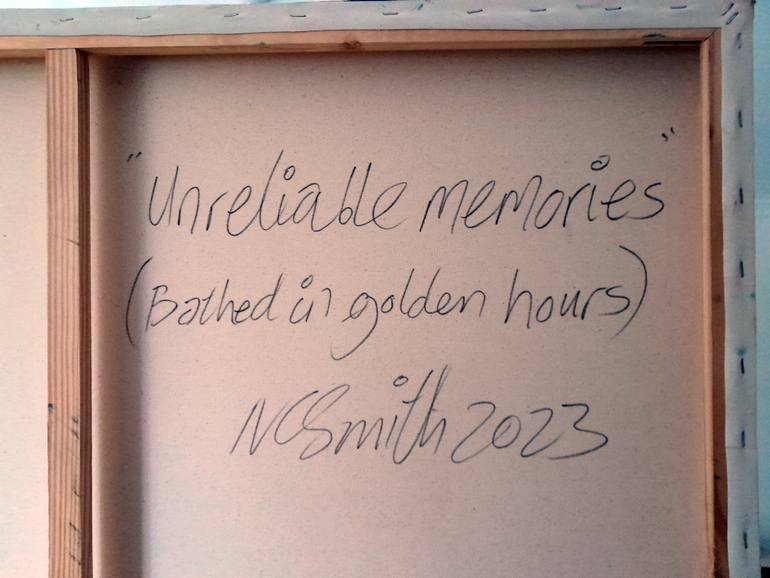 "Unreliable memories"
(Bathed in golden hours)
NCSmith 2023